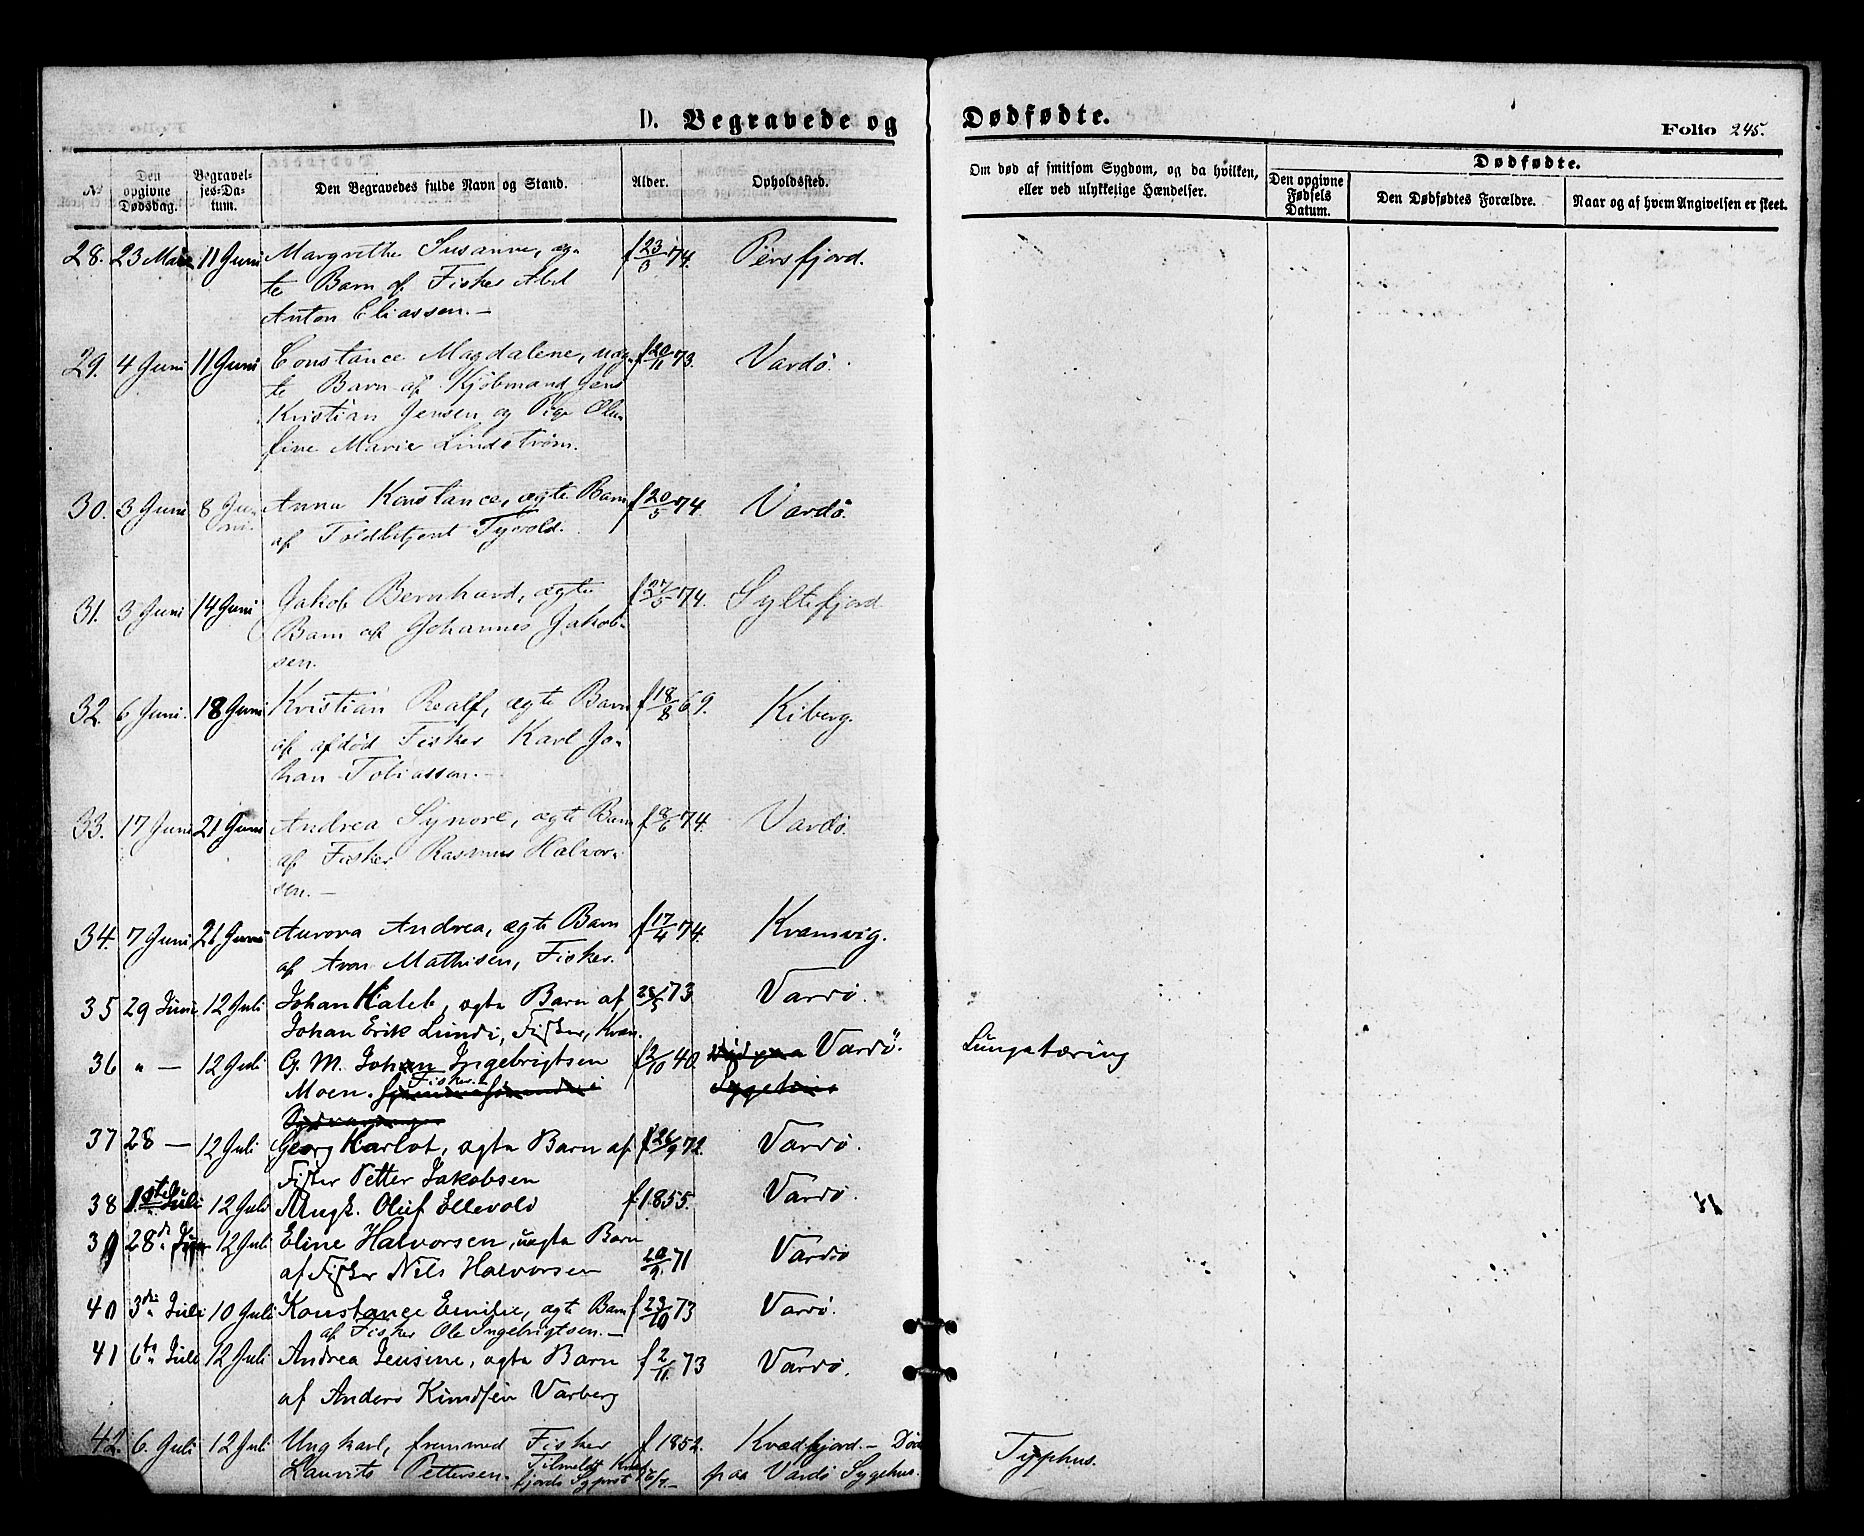 D. Begravede og Dødfødte.
Folio 245.
№
Den opgivne Dødsdag.
Begravel-ses-Da-tum.
Den Begravedes fulde Navn og Stand.
Alder.
Opholdssted.
Om død af smitsom Sygdom, og da hvilken, eller ved ulykkelige Hændelser.
Dødfødte.
Den opgivne Fødsels Datum.
Den Dødfødtes Forældre.
Naar og af hvem Angivelsen er skeet.
28. 23 Mai 11 Juni Margrethe Susanne, æg- f 23/3 74. Persfjord.
te Barn af Fisker Abel
Anton Eliassen.—
29. 4 Juni 11 Juni Constance Magdalene, uæg- f 20/11 73. Vardø.
te Barn af Kjøbmand Jens
Kristian Jensen og Pige Olu-
fine Marie Lindstrøm.
30. 3 Juni 8 Ju- Anna Konstance, ægte Barn f 20/5 74. Vardø.
ni. af Toldbetjent Tyvold.
31. 3 Juni 14 Juni Jakob Bernhard, ægte f 27/5 74. Syltefjord
Barn af Johannes Jakob-
sen.
32. 6 Juni. 18 Juni Kristian Realf, ægte Barn f 18/8 69. Kiberg.
af afdød Fisker Karl Jo-
han Tobiassen.—
33. 17 Juni 21 Juni Andrea Synore, ægte Barn f 8/6 74. Vardø.
af Fisker Rasmus Halvor-
sen.—
34. 7 Juni 21 Juni Aurora Andrea, ægte Barn f 17/4 74. Kramvig.
af Aron Mathisen, Fisker.
35 29 Juni 12 Juli Johan Kaleb, ægte Barn af 73 Vardø.
Johan Erik Lundi, Fisker, Kvæn.
36 " — 12 Juli G. M. Johan Ingebrigtsen f 2/10 40. Vardø. Lungetæring
Moen. Fisker.
37 28 — 12 Juli Georg Karlot, ægte Barn af f 26/9 72. Vardø.
Fisker Petter Jakobsen
38 1ste Juli 12 Juli Ungk. Oluf Ellevold f 1855. Vardø.
39 28de Juni 12 Juli Eline Halvorsen, uægte Barn 20/9 71 Vardø
af Fisker Nils Halvorsen
40 3die Juli 10 Juli Konstance Emilie, ægte Barn f 23/10 73 Vardø.
af Fisker Ole Ingebrigtsen.—
41 6te Juli 12 Juli Andrea Jensine, ægte Barn f 2/11. 73 Vardø.
af Anders Knudsen Varberg
42. 6. Juli 12 Juli Ungkarl, fremmed Fisker f 1852. Kvædfjord.— Død Typhus.
Laurits Pettersen. Tilmeldt Kvæd- paa Vardø Sygehus.
fjords Sgprst 16/7.—